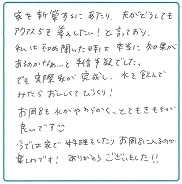 家を新築するにあたり、夫がどうしても
アクアス5を導入したい!と言っており、
私は初め聞いた時は本当に効果が
あるのかなぁ…と半信半疑でした。
でも実際家が完成し、水を飲んで
みたらおいしくてびっくり!
お風呂も水がやわらかく、とてもきもちが
良いです
今では家で料理をしたりお風呂に入るのが
楽しみです!ありがとうございました!!